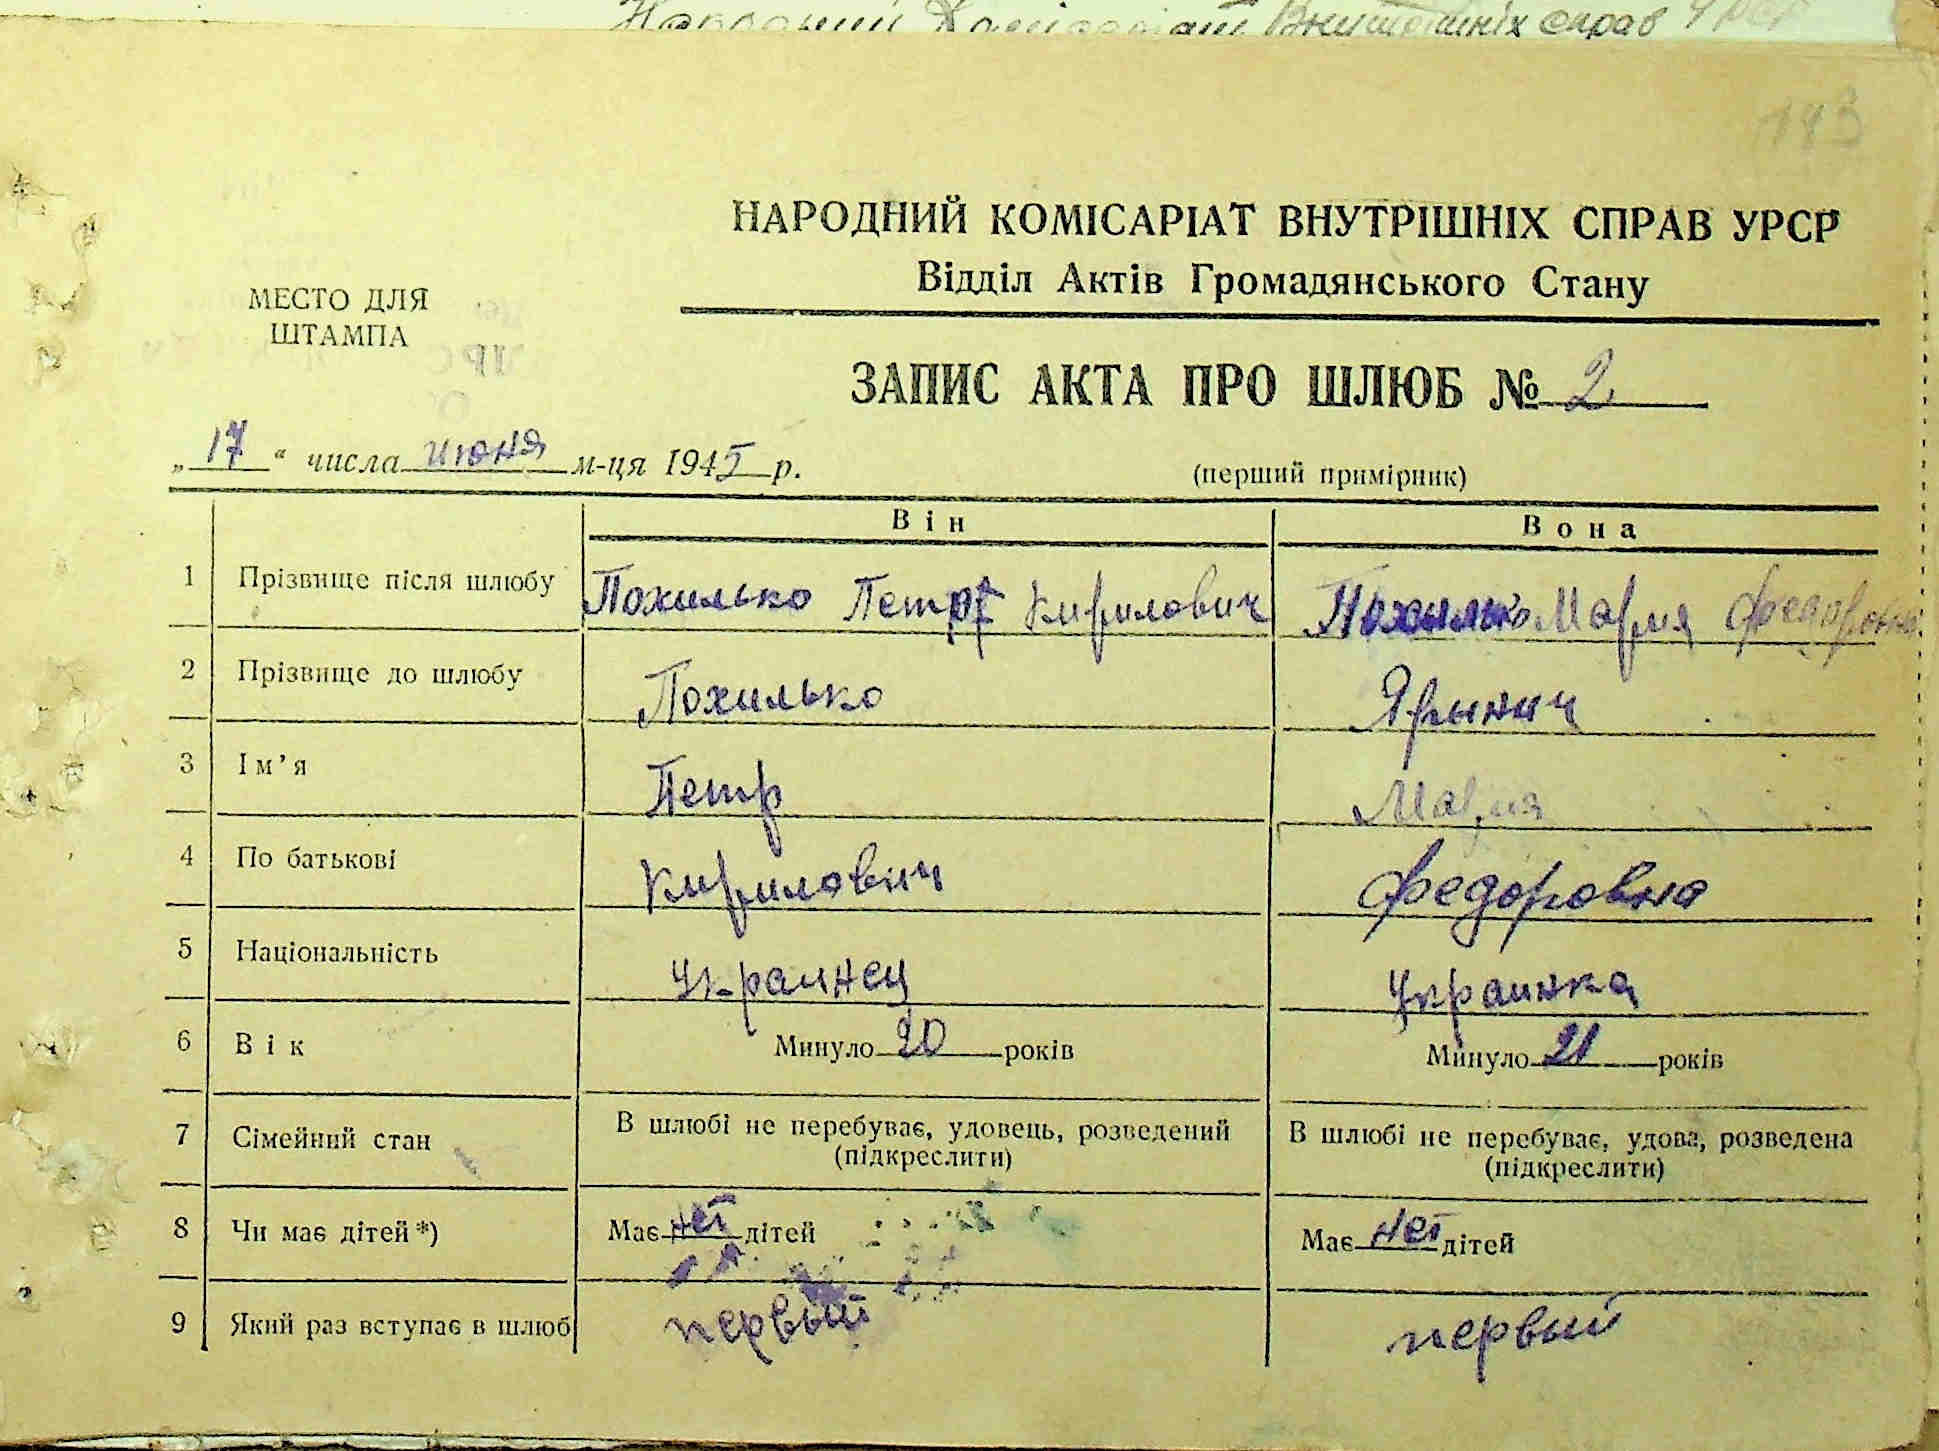 Народний Комісаріат Внутрішніх справ УРСР
143
НАРОДНИЙ КОМІСАРІАТ ВНУТРІШНІХ СПРАВ УРСР
Відділ Актів Громадянського Стану
МЕСТО ДЛЯ
ШТАМПА
ЗАПИС АКТА ПРО ШЛЮБ № 2
„17“ числа июня м-ця 1945 р.
(перший примірник)
Він Вона
1 Прізвище після шлюбу Похилько Петр Кирилович Похилько Мария Федоровна
2 Прізвище до шлюбу Похилько Ярынич
3 Ім’я Петр Мария
4 По батькові Кирилович Федоровна
5 Національність Украинец Украинка
6 Вік Минуло 20 років Минуло 21 років
7 Сімейний стан В шлюбі не перебуває, удовець, розведений (підкреслити) В шлюбі не перебуває, удова, розведена (підкреслити)
8 Чи має дітей*) Має нет дітей Має нет дітей
9 Який раз вступає в шлюб первый первый